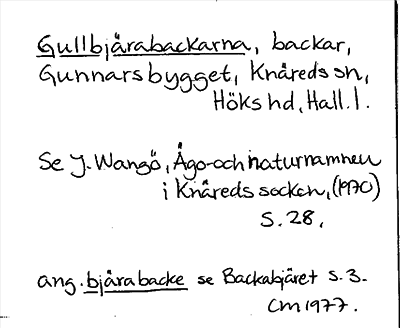 Gullbjårabackarna, backar,
Gunnarsbygget, Knåreds sn,
Höks hd, Hall. l.
Se J. Wangö, Ågo- och naturnamnen
i Knåreds socken, (1970)
s. 28.
ang. bjårabacke se Backabjäret s. 3.
CM 1977.